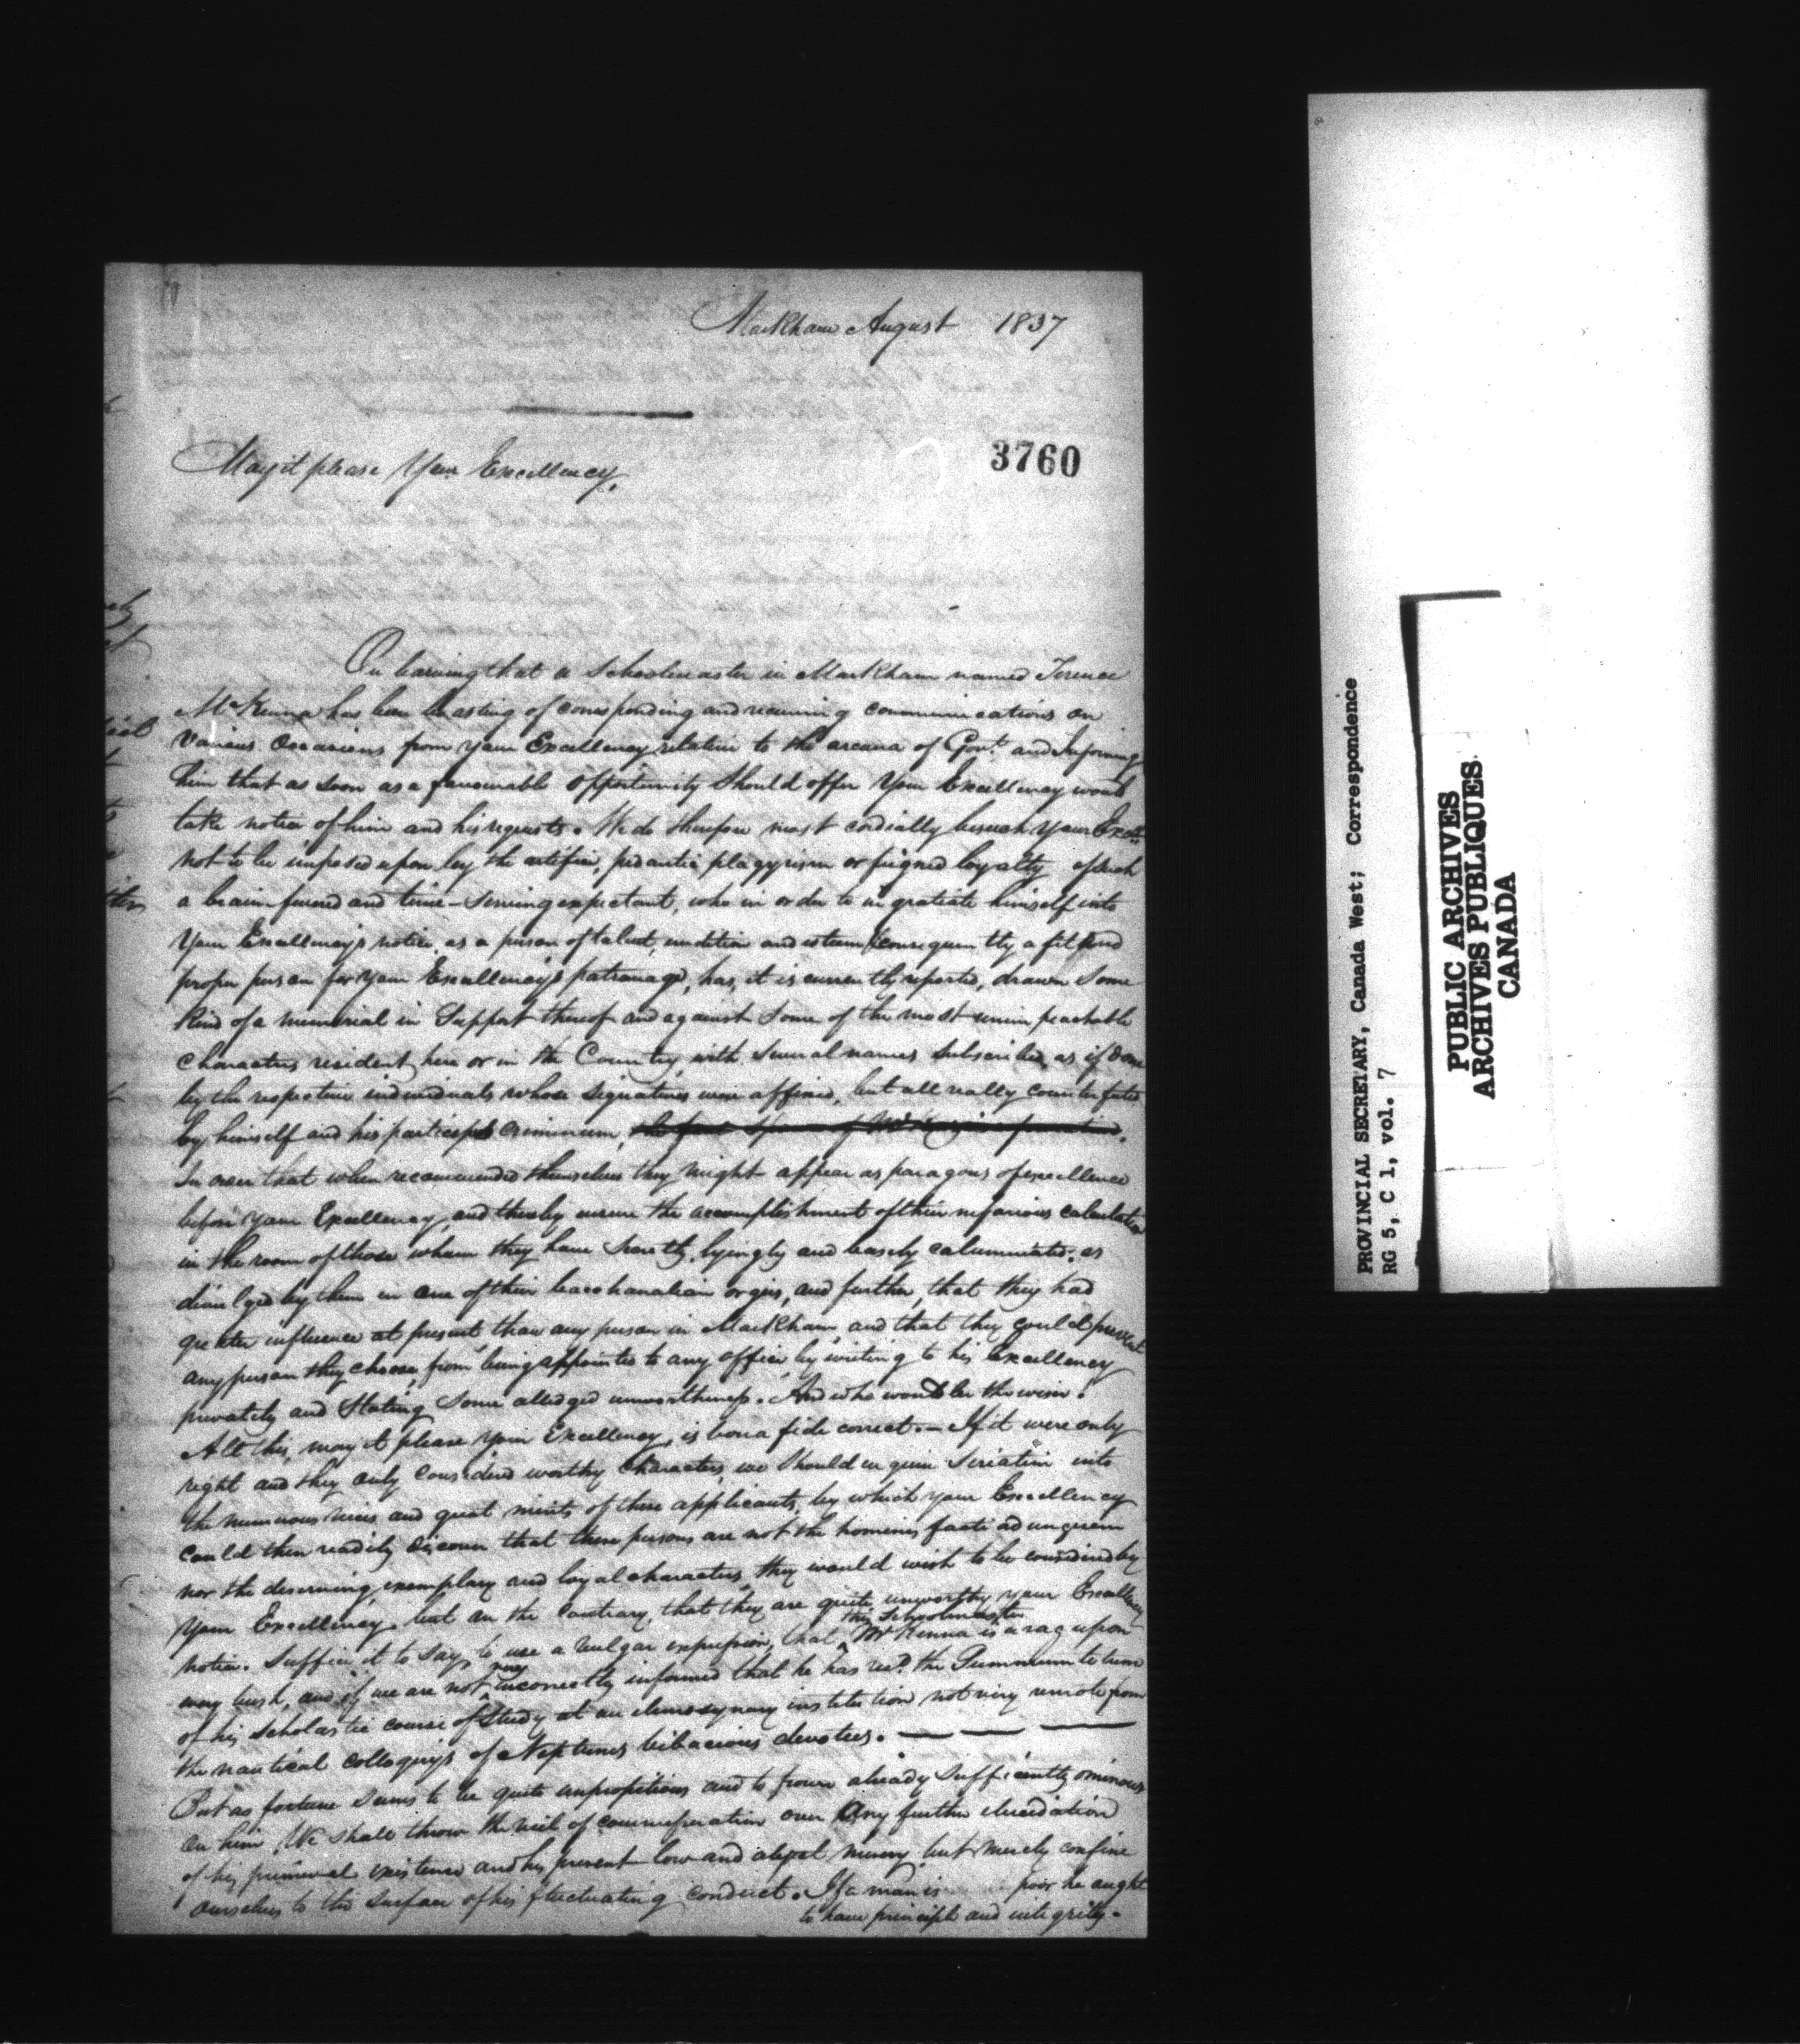 Markham August 1837
3760
May it please Your Excellency,
On learning that a Schoolmaster in Markham named Terence
McKenna has been boasting of corresponding and receiving communications on
Various Occasions from your Excellency relative to the arcana of Govt. and Informing
him that as soon as a favourable opportunity Should offer Your Excellency would
take notice of him and his requests. We do therefore most cordially beseech Your Excell:
not to be imposed upon by the artifice, pedantic plagyrism or feigned loyalty of such
a brain-fevered and time-serving expectant, who in order to ingratiate himself into
Your Excellency's notice, as a person of talent, erudition and esteem (consequently a fit and
proper person for Your Excellency's patronage, has, it is currently reported, drawn Some
Kind of a memorial in Support thereof and against Some of the most unimpeachable
characters resident here or in the Country, with Several names Subscribed, as if done
by the respective individuals whose Signatures were affixed, but all really counterfeited
by himself and his particeps Criminum,
In order that when recommended themselves they might appear as paragons of excellence
before Your Excellency, and thereby ensure the accomplishment of their nefarious calculation
in the room of those whom they have Secretly, lyingly and basely calumniated; as
divulged by them in one of their bacchanalian orgies, and further, that they had
greater influence at present than any person in Markham, and that they could prevent
any person they choose, from being appointed to any office, by writing to his Excellency
privately and Stating Some alledged unworthiness. And who would be the wiser!
All this, may it please Your Excellency, is bona fide correct.— If it were only
right and they only considered worthy Characters, we Should enquire Seriatim into
the numerous vices and great merits of these applicants, by which your Excellency
could then readily discover that these persons are not the homines facti ad unguem
nor the deserving, exemplary and loyal characters, they would wish to be considered by
Your Excellency, but on the Contrary, that they are quite unworthy your Excellency
notice. Suffice it to Say, to use a vulgar expression, that this Schoolmaster McKenna is a rag upon
every bush, and if we are not very incorrectly informed that he has recd. the Summum bonum
of his Scholastic course of Study at an elemosynary institution not very remote from
the nautical colloquys of Neptunes bibacious devotees. — — —
But as fortune Seems to be quite unpropitious and to frown already Sufficiently ominous
on him, We shall throw the veil of commiseration over Any further elucidation
of his primeval existence and his present low and abject misery, but merely confine
ourselves to the Surface of his fluctuating conduct. If a man is poor he ought
to have principle and integrity.
PROVINCIAL SECRETARY, Canada West; Correspondence
RG 5, C 1, vol. 7
PUBLIC ARCHIVES
ARCHIVES PUBLIQUES
CANADA